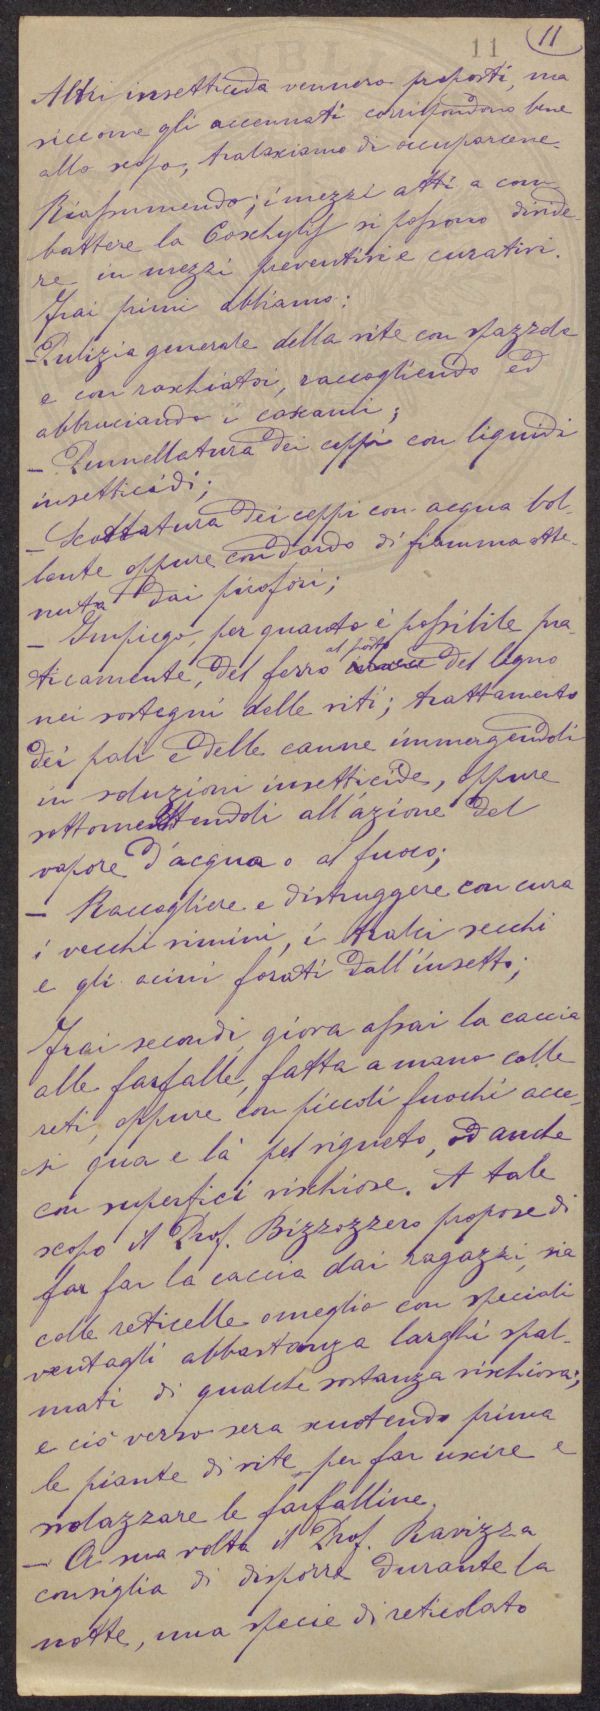 11 11
Altri insetticida vennero proposti, ma
siccome gli accennati corrispondono bene
allo scopo, tralasciamo di occuparcene.
Riassumendo; i mezzi atti a com-
battere la Cochylis si possono divide-
re in mezzi preventivi e curativi.
Frai primi abbiamo:
- Pulizia generale della vite con spazzole
e con raschiatoi, raccogliendo ed
abbruciando i cascami;
- Pennellatura dei ceppi con liquidi
insetticidi;
- Scottatura dei ceppi con acqua bol-
lente oppure con dardo di fiamma otte-
nuta dai pirofori;
- Impiego, per quanto è possibile pra-
ticamente, del ferro al posto del legno
nei sostegni delle viti; trattamento
dei pali e delle canne immergendoli
in soluzioni insetticide, oppure
sottomettendoli all'azione del
vapore d'acqua o al fuoco;
- Raccogliere e distruggere con cura
i vecchi vimini, i tralci secchi
e gli acini forati dall'insetto;
Frai secondi, giova assai la caccia
alle farfalle, fatta a mano colle
reti, oppure con piccoli fuochi acce-
si qua e là pel vigneto, od anche
con superfici vischiose. A tale
scopo il Prof. Bizzozzero propose di
far far la caccia dai ragazzi, sia
colle reticelle o meglio con speciali
ventagli abbastanza larghi spal-
mati di qualche sostanza vischiosa;
e ciò verso sera scuotendo prima
le piante di vite per far uscire e
svolazzare le farfalline.
- A sua volta il Prof. Ravizza
consiglia di disporre durante la
notte, una specie di reticolato